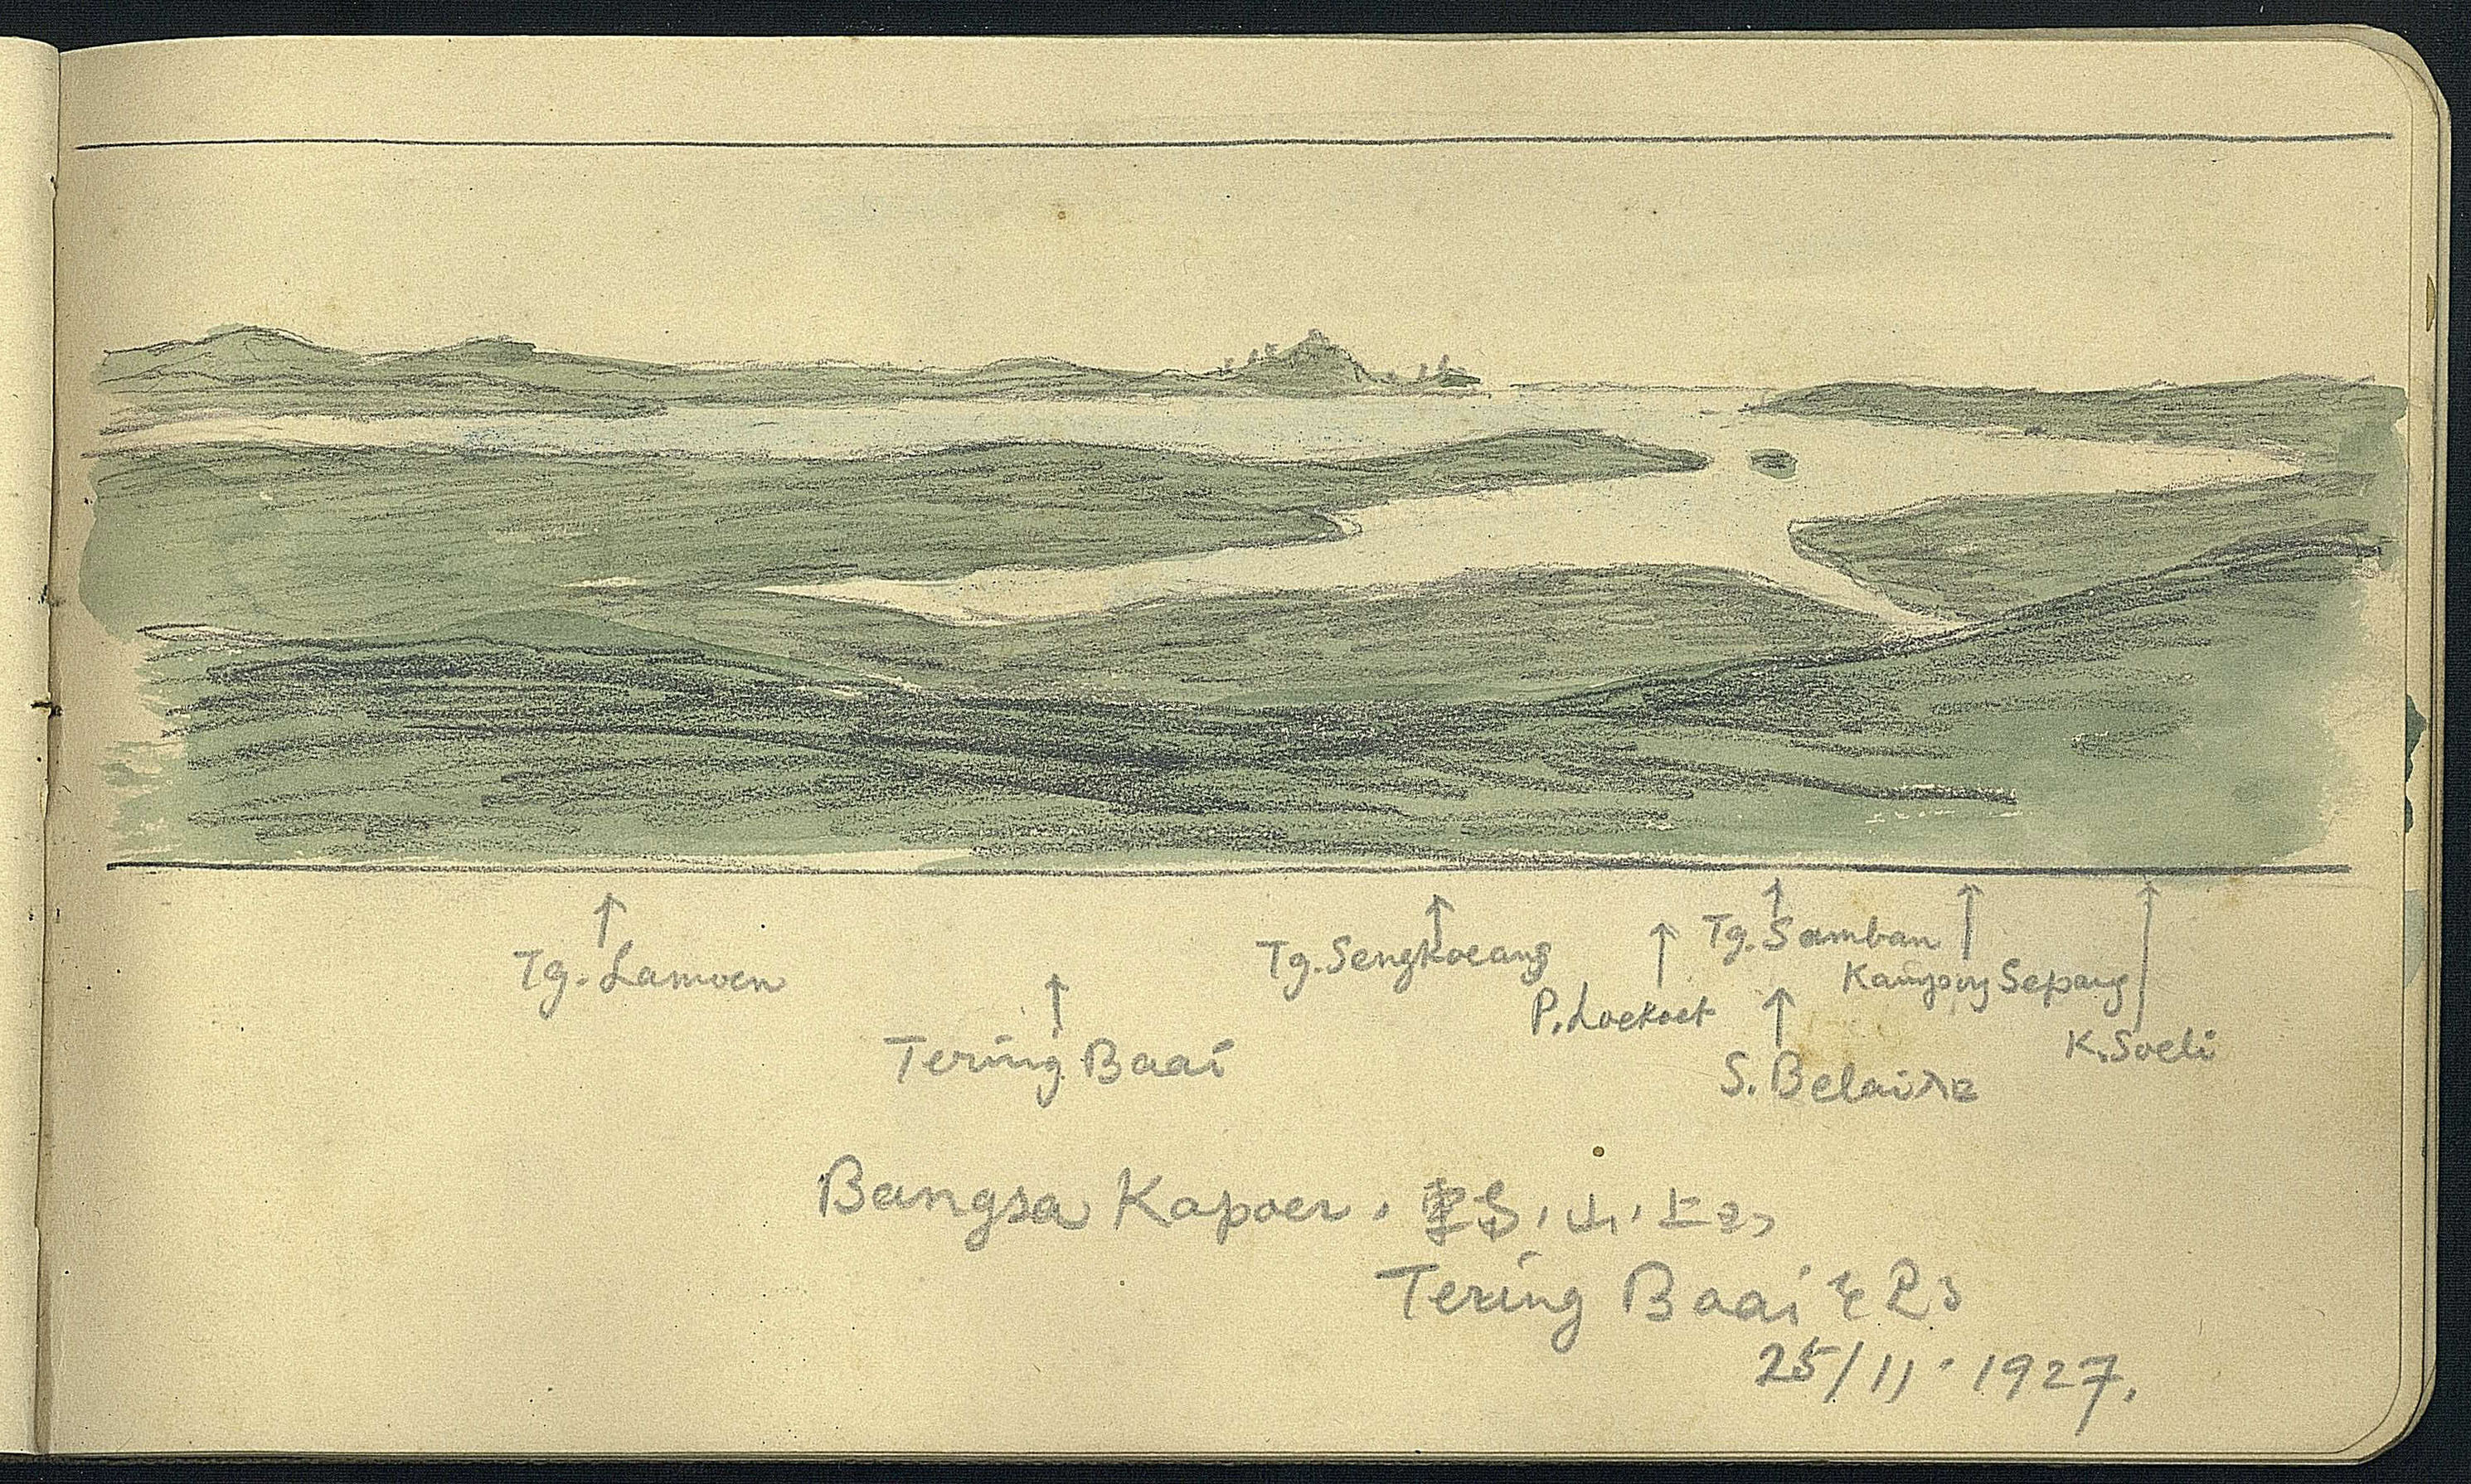 Tg. Lamoen
Tering Baai
Tg. Sengkoeang
P. Loekoet
Tg. Samban
S. Belai
Kampong Sepang
K. Soeli
Bangsa Kapoer. 山 上
Tering Baai
25/11・1927.